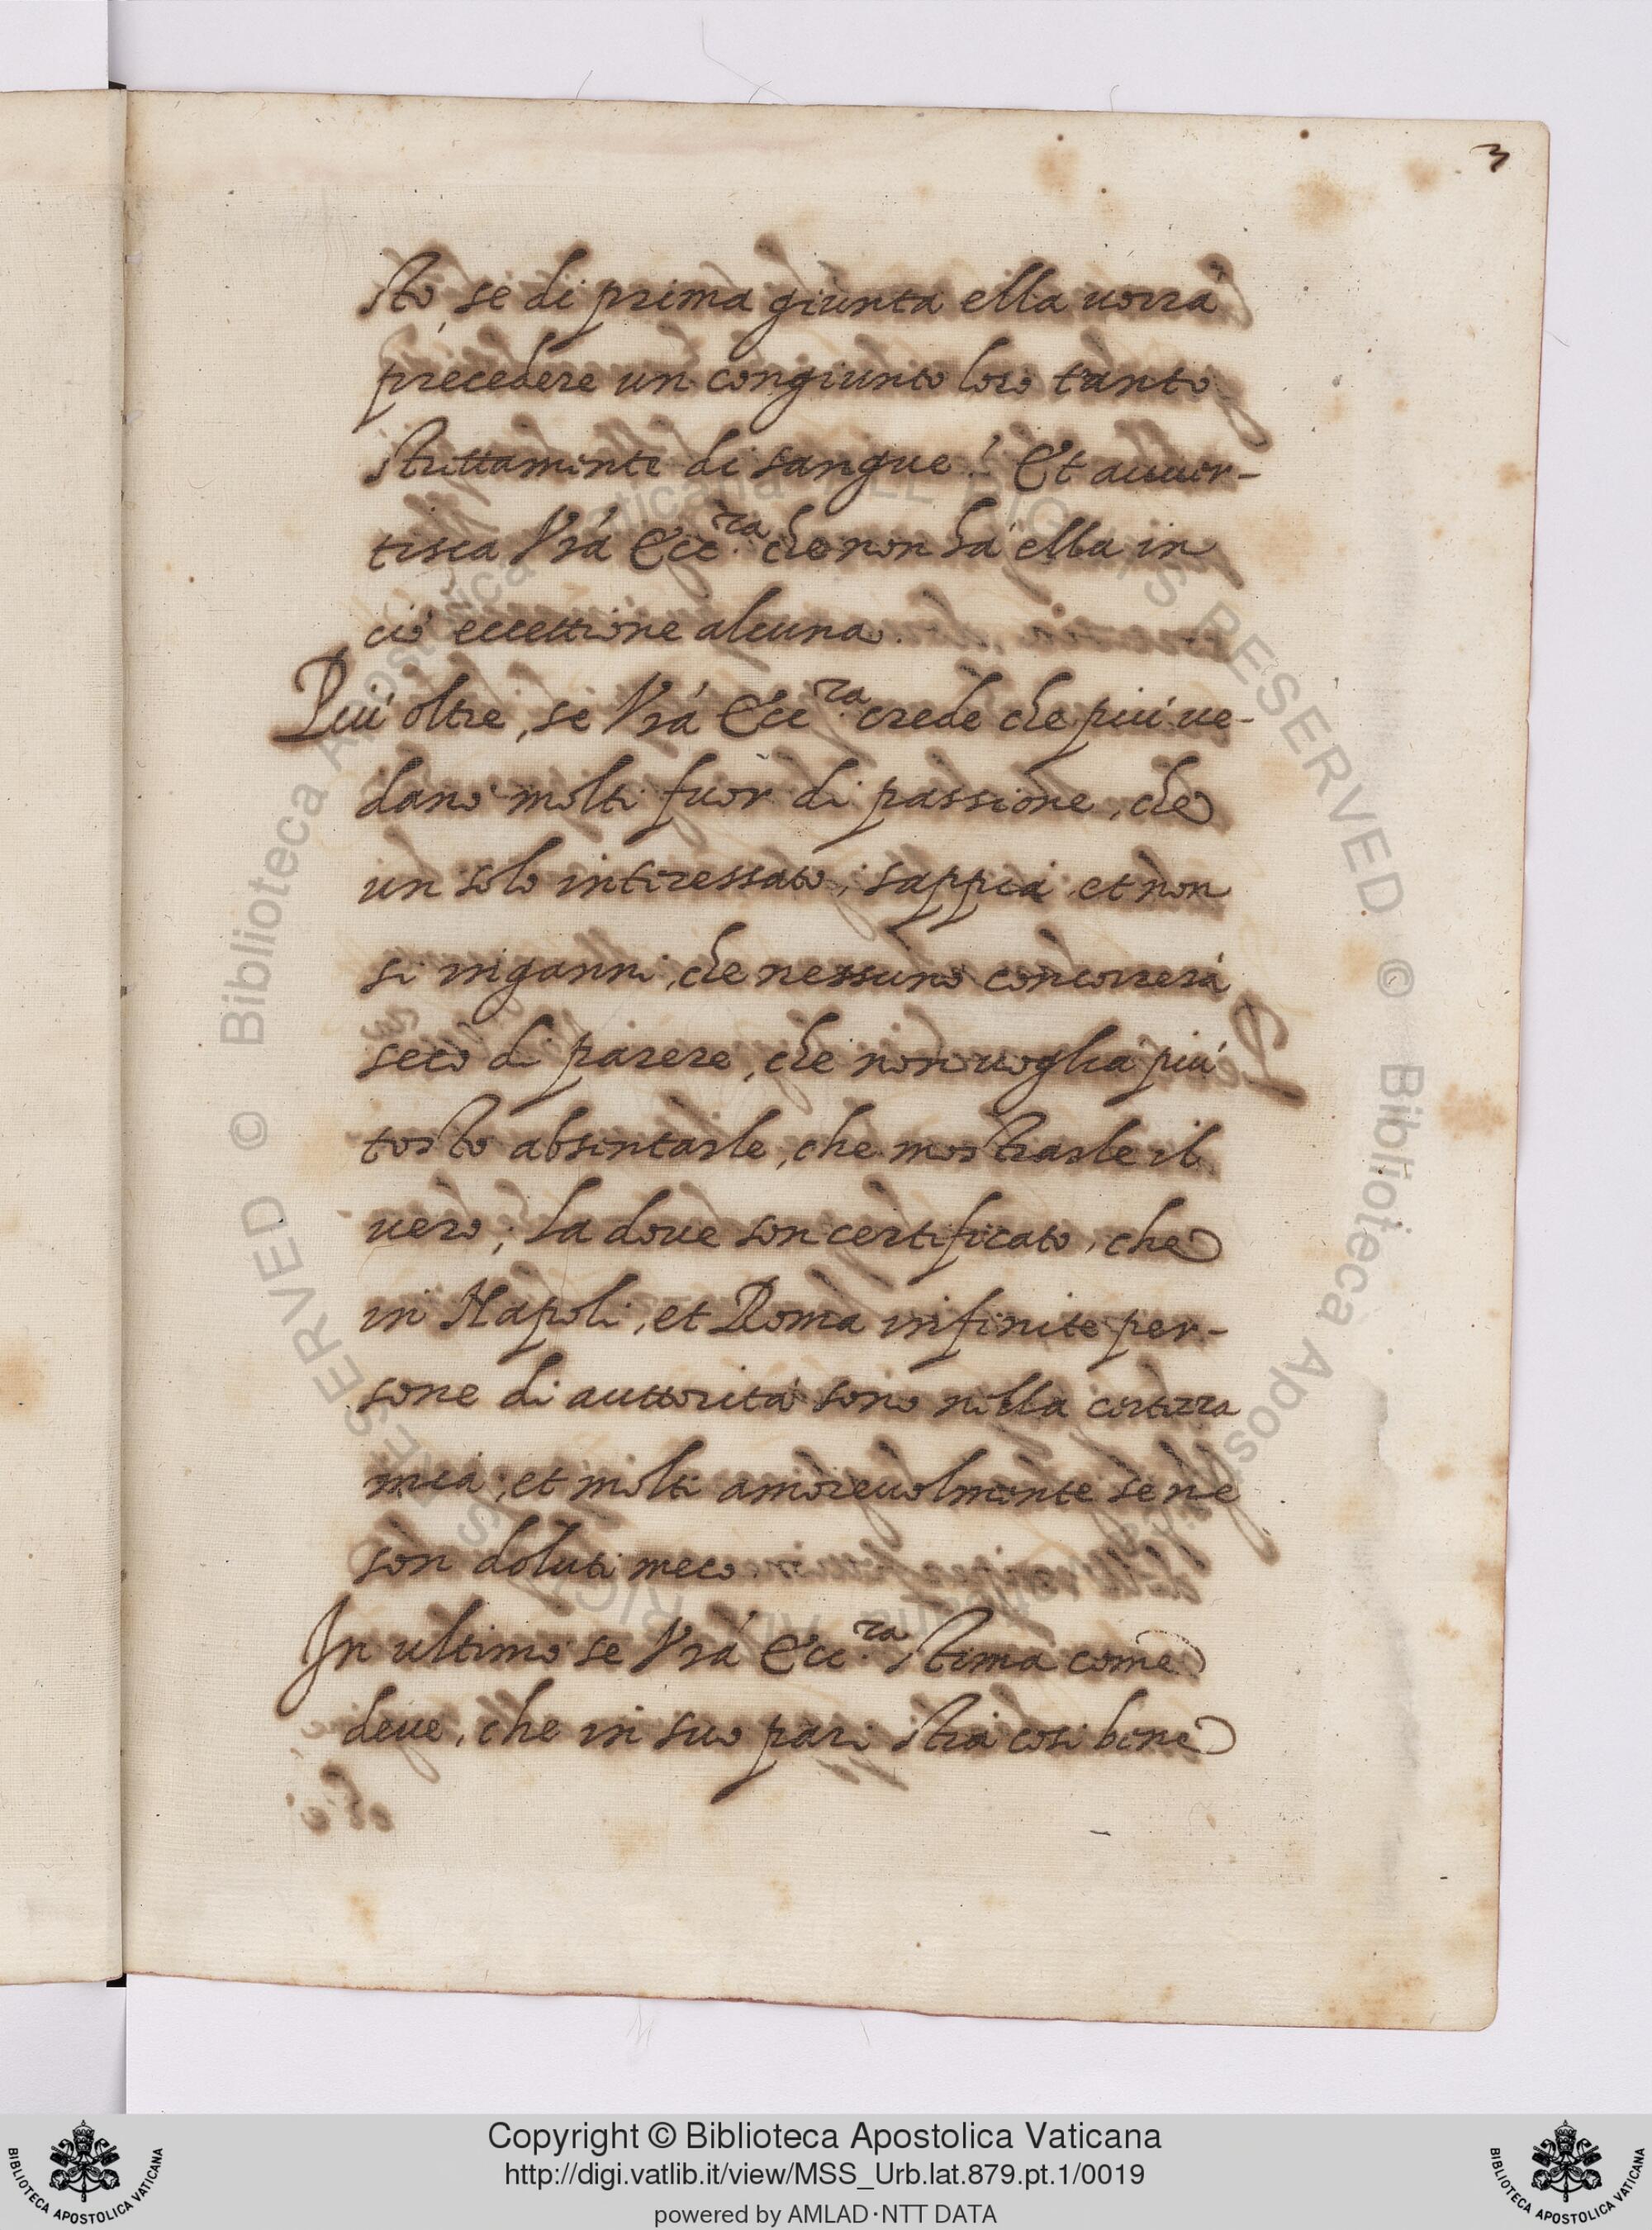 3
sto, se di prima giunta ella uorrà
precedere un congiunto loro tanto
strettamente di sangue? Et auuer-
tisca Vra Ecc.ra che non hà ella in
ciò eccettione alcuna.
Piú oltre, se Vra Ecc.ra crede che piú ue-
dano molti fuor di passione, che
un solo interessato; sappia et non
si inganni, che nessuno concorrerà
seco di parere, che non uoglia piú
tosto absentarle, che mostrarle il
uero; La doue son certificato, che
in Napoli, et Roma infinite per-
sone di auttorità sono nella certezza
mia; et molti amoreuolmente se ne
son doluti meco.
In ultimo se Vra Ecc.ra stima come
deue, che in suo pari stia cosi bene
Copyright © Biblioteca Apostolica Vaticana
http://digi.vatlib.it/view/MSS_Urb.lat.879.pt.1/0019
powered by AMLAD·NTT DATA
BIBLIOTECA APOSTOLICA VATICANA
BIBLIOTECA APOSTOLICA VATICANA